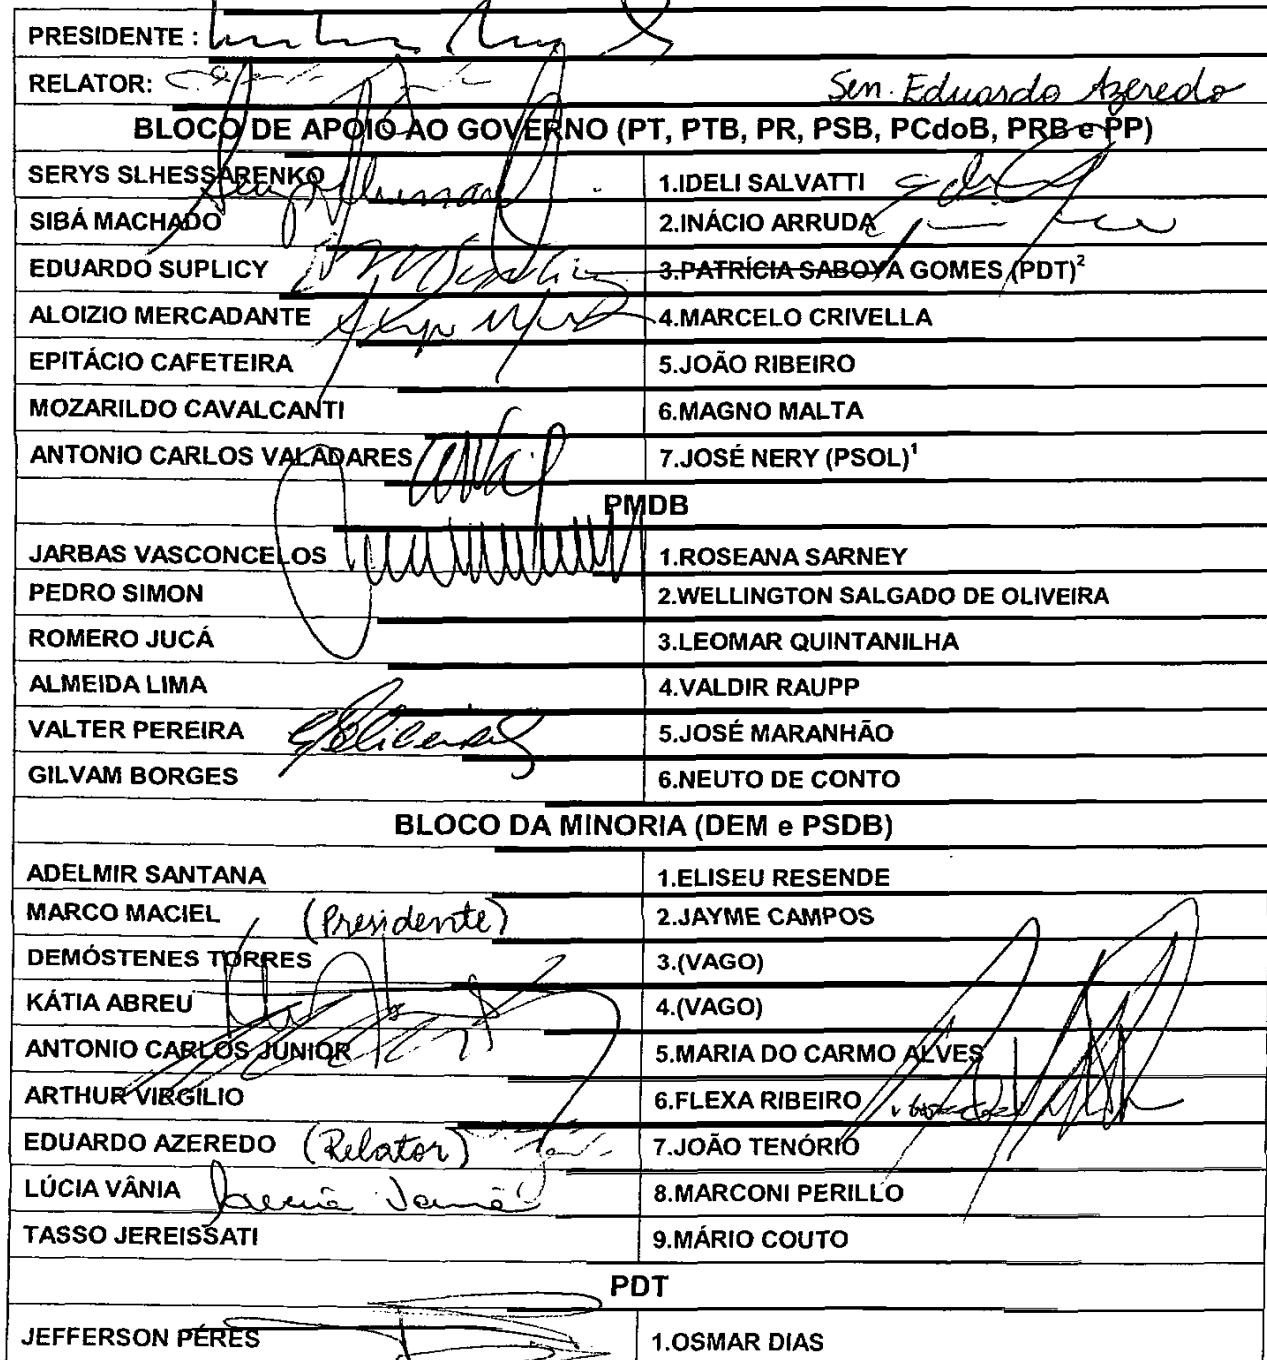 PRESIDENTE :
RELATOR: Sen. Eduardo Azeredo
BLOCO DE APOIO AO GOVERNO (PT, PTB, PR, PSB, PCdoB, PRB e PP)
SERYS SLHESSARENKO 1.IDELI SALVATTI
SIBÁ MACHADO 2.INÁCIO ARRUDA
EDUARDO SUPLICY 3.PATRÍCIA SABOYA GOMES (PDT)²
ALOIZIO MERCADANTE 4.MARCELO CRIVELLA
EPITÁCIO CAFETEIRA 5.JOÃO RIBEIRO
MOZARILDO CAVALCANTI 6.MAGNO MALTA
ANTONIO CARLOS VALADARES 7.JOSÉ NERY (PSOL)¹
PMDB
JARBAS VASCONCELOS 1.ROSEANA SARNEY
PEDRO SIMON 2.WELLINGTON SALGADO DE OLIVEIRA
ROMERO JUCÁ 3.LEOMAR QUINTANILHA
ALMEIDA LIMA 4.VALDIR RAUPP
VALTER PEREIRA 5.JOSÉ MARANHÃO
GILVAM BORGES 6.NEUTO DE CONTO
BLOCO DA MINORIA (DEM e PSDB)
ADELMIR SANTANA 1.ELISEU RESENDE
MARCO MACIEL (Presidente) 2.JAYME CAMPOS
DEMÓSTENES TORRES 3.(VAGO)
KÁTIA ABREU 4.(VAGO)
ANTONIO CARLOS JÚNIOR 5.MARIA DO CARMO ALVES
ARTHUR VIRGÍLIO 6.FLEXA RIBEIRO
EDUARDO AZEREDO (Relator) 7.JOÃO TENÓRIO
LÚCIA VÂNIA Lucia Vania 8.MARCONI PERILLO
TASSO JEREISSATI 9.MÁRIO COUTO
PDT
JEFFERSON PÉRES 1.OSMAR DIAS